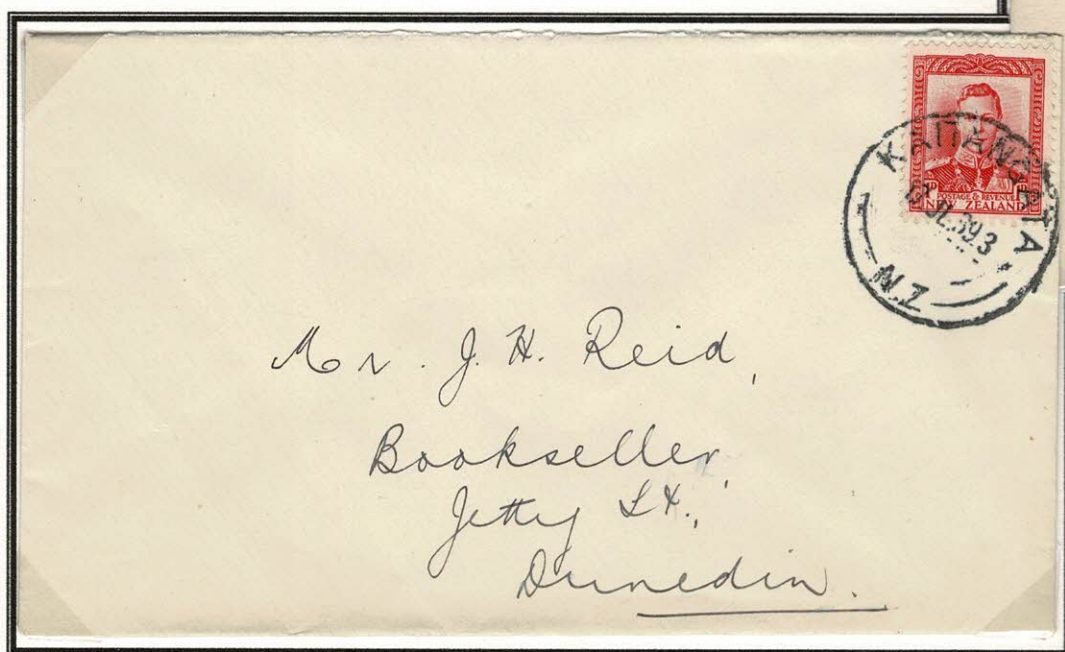 POSTAGE & REVENUE
NEW ZEALAND
KAITANGATA
JL.39.3
N.Z
Mr. J. H. Reid,
Bookseller,
Jetty St.,
Dunedin.